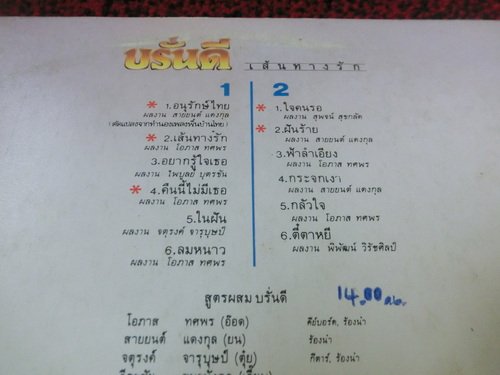 บรั่นดี เส้นทางรัก
1
* 1.อนุรักษ์ไทย
ผลงาน สายยนต์ แดงกุล
(ดัดแปลงจากทำนองเพลงพื้นบ้านไทย)
* 2.เส้นทางรัก
ผลงาน โอภาส ทศพร
3.อยากรู้ใจเธอ
ผลงาน ไพบูลย์ บุตรขัน
* 4.คืนนี้ไม่มีเธอ
ผลงาน โอภาส ทศพร
5.ในฝัน
ผลงาน จตุรงค์ จารุบุษป์
6.ลมหนาว
ผลงาน โอภาส ทศพร
2
* 1.ใจคนรอ
ผลงาน สุพจน์ สุขกลัด
* 2.ฝันร้าย
ผลงาน สายยนต์ แดงกุล
3.ฟ้าลำเอียง
ผลงาน โอภาส ทศพร
4.กระจกเงา
ผลงาน สายยนต์ แดงกุล
5.กลัวใจ
ผลงาน โอภาส ทศพร
6.ตี๋ตาหยี
ผลงาน พิพัฒน์ วิรัชศิลป์
สูตรผสม บรั่นดี 14.00
โอภาส ทศพร (อ๊อด) คีย์บอร์ด, ร้องนำ
สายยนต์ แดงกุล (ยน) ร้องนำ
จตุรงค์ จารุบุษป์ (ตุ๋ย) กีตาร์, ร้องนำ